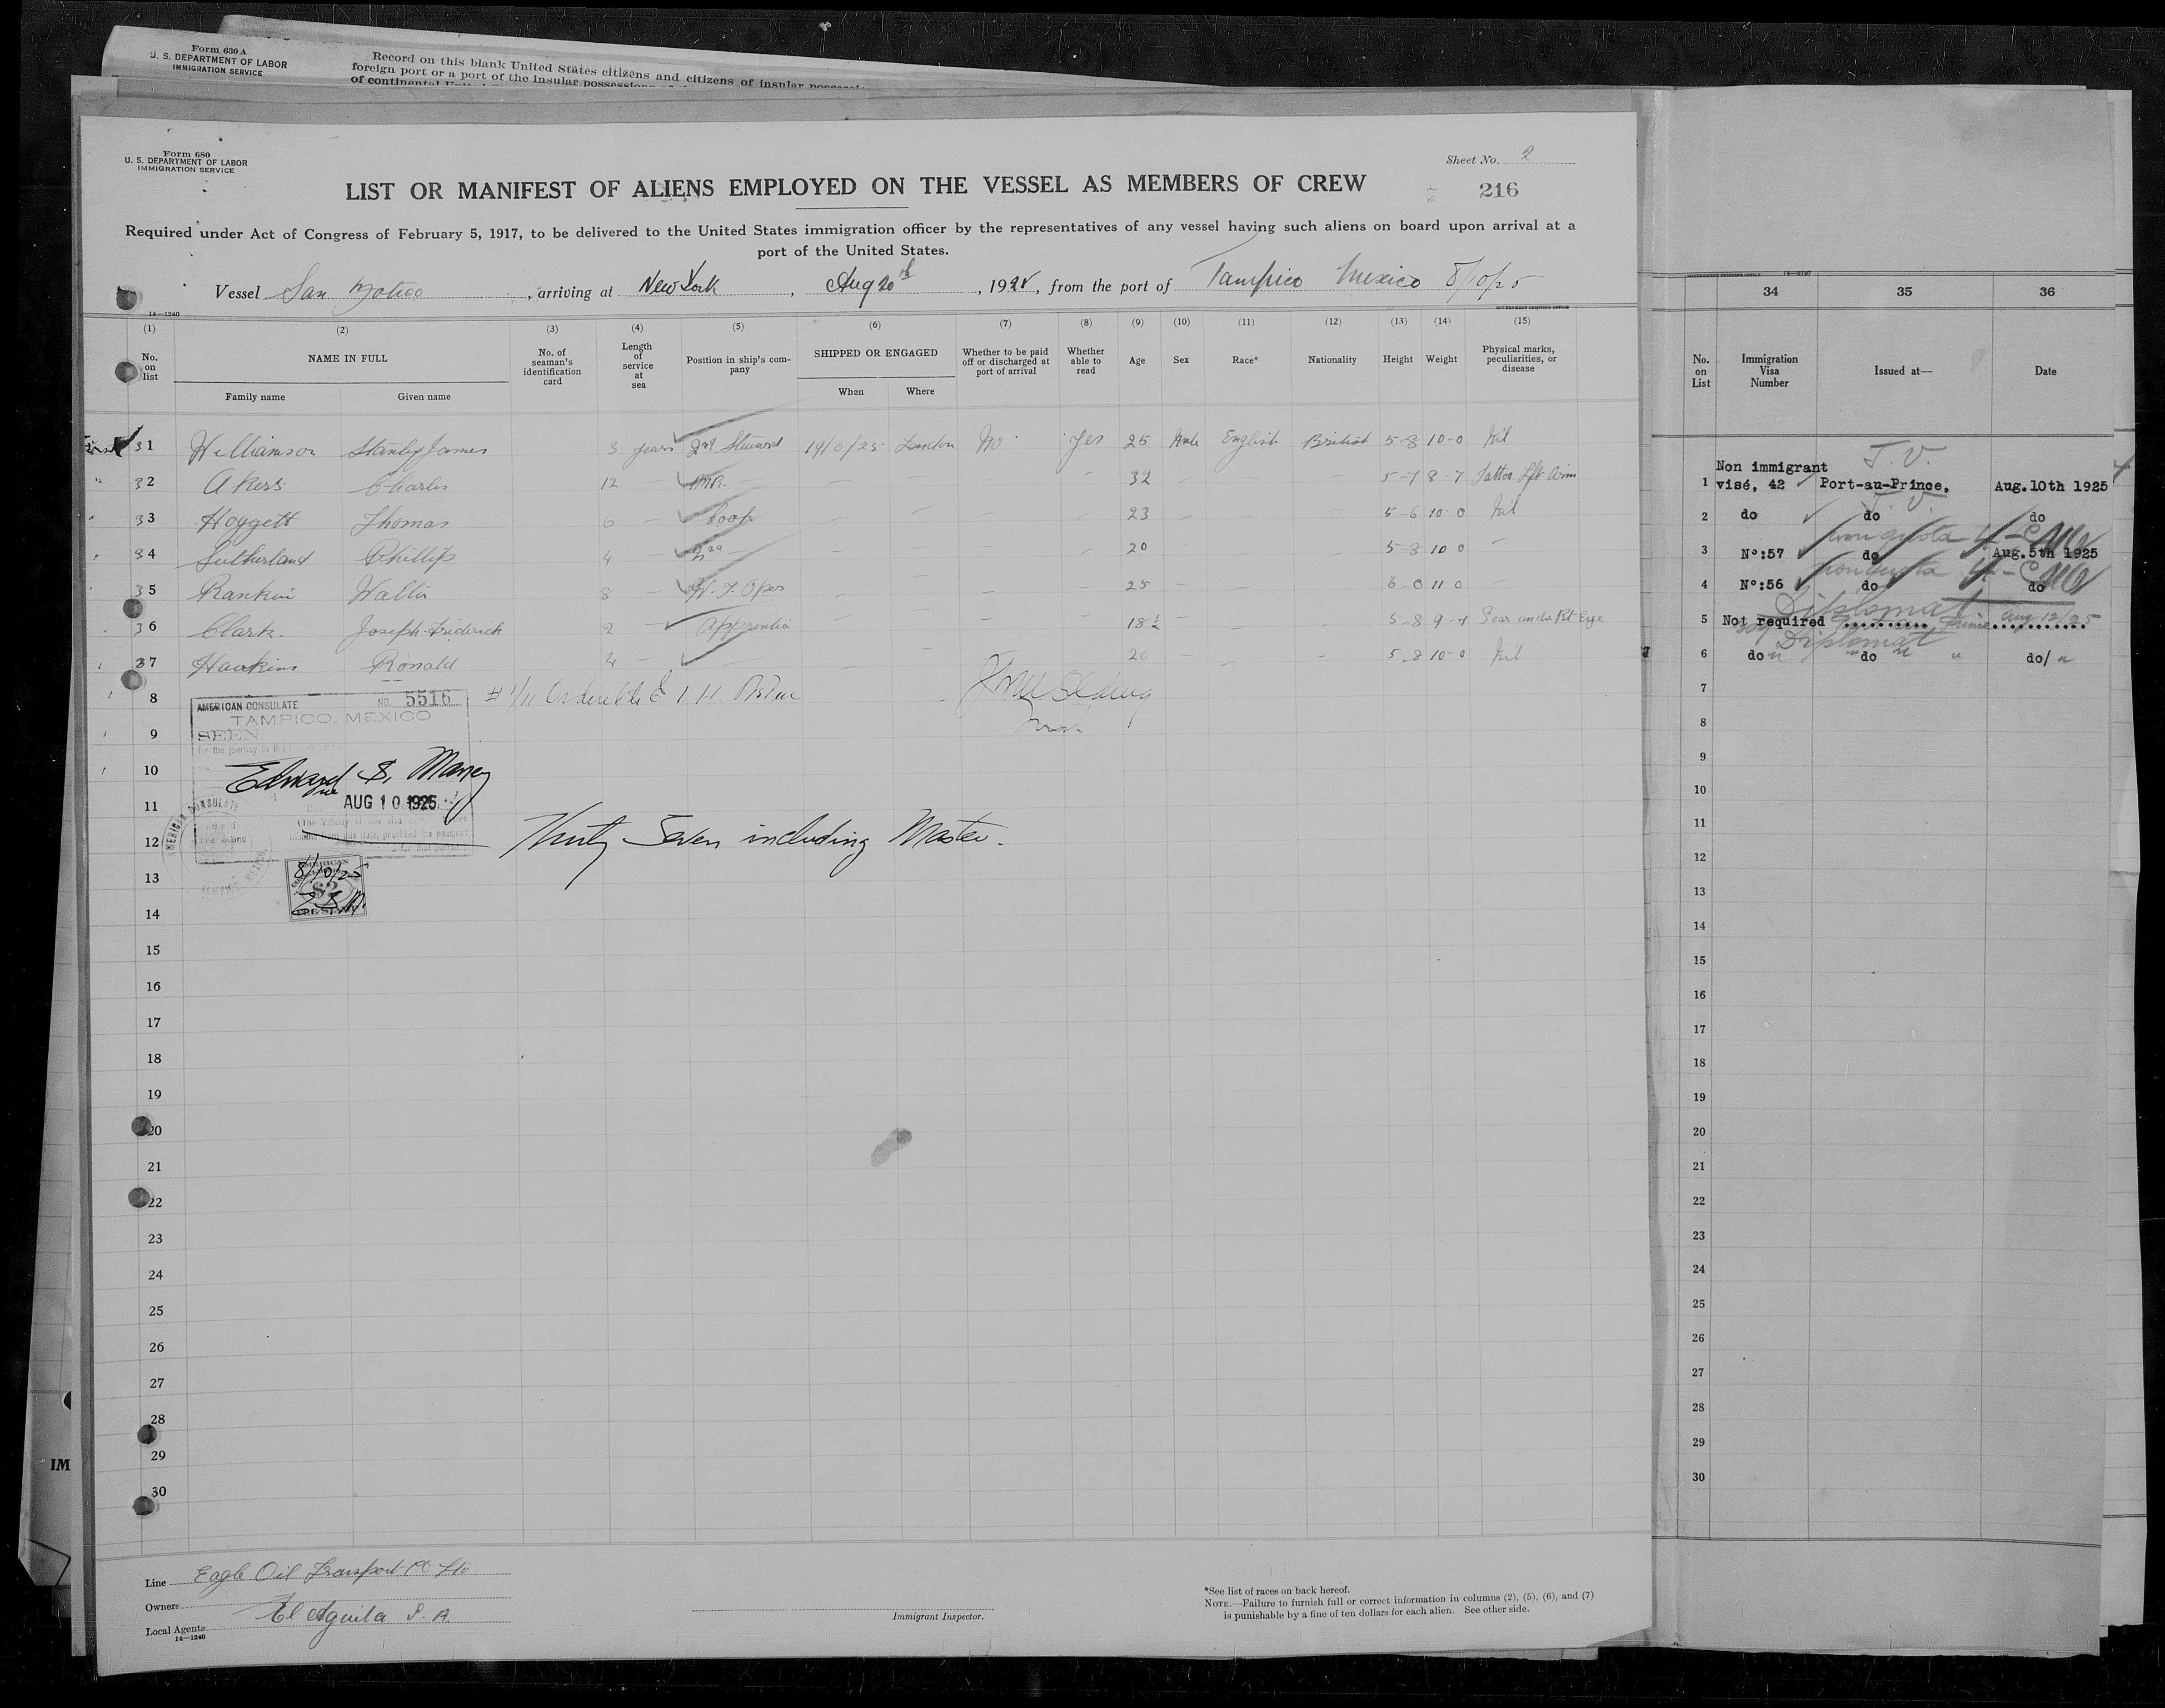 Form 630 A
U. S. DEPARTMENT OF LABOR
IMMIGRATION SERVICE
Record on this blank United States citizens and citizens of insular
foreign port or a port of the insular possessions
of continental
Form 680
U. S. DEPARTMENT OF LABOR
IMMIGRATION SERVICE
Sheet No. 2
LIST OR MANIFEST OF ALIENS EMPLOYED ON THE VESSEL AS MEMBERS OF CREW
216
Required under Act of Congress of February 5, 1917, to be delivered to the United States immigration officer by the representatives of any vessel having such aliens on board upon arrival at a
port of the United States.
Vessel San , arriving at New York , Aug 20th , 1925, from the port of Tampico Mexico 8/10/25
14—1240
(1) (2) (3) (4) (5) (6) (7) (8) (9) (10) (11) (12) (13) (14) (15)
No. on list
NAME IN FULL
Family name Given name
No. of seaman's identification card
Length of service at sea
Position in ship's company
SHIPPED OR ENGAGED
When Where
Whether to be paid off or discharged at port of arrival
Whether able to read
Age
Sex
Race*
Nationality
Height
Weight
Physical marks, peculiarities, or disease
31 Williamson Stanley James 3 years 2nd Steward 19/6/25 London No Yes 25 Male English British 5-8 10-0 Nil
32 Akers Charles 12 — — 32 — 5-7 8-7 Tattoo Lft Arm
33 Hoggett Thomas 6 — 23 — 5-6 10-0 Nil
34 Sutherland Phillip 4 — 2nd — 20 5-8 10 0 "
35 Rankin Walter 8 — W. T. Oper 25 — 6-0 11 0 —
36 Clark. Joseph Friderick 2 — Apprentice 18½ — 5-8 9-7 Scar under Rt Eye
37 Hawkins Ronald 4 — 20 — 5-8 10-0 Nil
8
AMERICAN CONSULATE NO. 5516
TAMPICO, MEXICO
SEEN
9
for the journey to the
10
Edward S. Maney
AUG 10 1925
11
12
Thirty Seven including Master.
AMERICAN CONSULATE
TAMPICO, MEXICO
13
8/10/25
$2
E S M.
14
15
16
17
18
19
20
21
22
23
24
25
26
27
28
29
30
IM
Line Eagle Oil Transport Co Ltd
Owners
El Aguila S. A.
Local Agents
14—1240
Immigrant Inspector.
*See list of races on back hereof.
NOTE.—Failure to furnish full or correct information in columns (2), (5), (6), and (7)
is punishable by a fine of ten dollars for each alien. See other side.
34 35 36
No. on List
Immigration Visa Number
Issued at—
Date
T. V.
Non immigrant
1 visé, 42 Port-au-Prince, Aug.10th 1925
T. V.
2 do do do
3 Nº:57 do Aug.5th 1925
4 Nº:56 do do
Diplomat
5 Not required .......... Aug 12/25
Diplomat
6 do " do " " do/ "
7
8
9
10
11
12
13
14
15
16
17
18
19
20
21
22
23
24
25
26
27
28
29
30